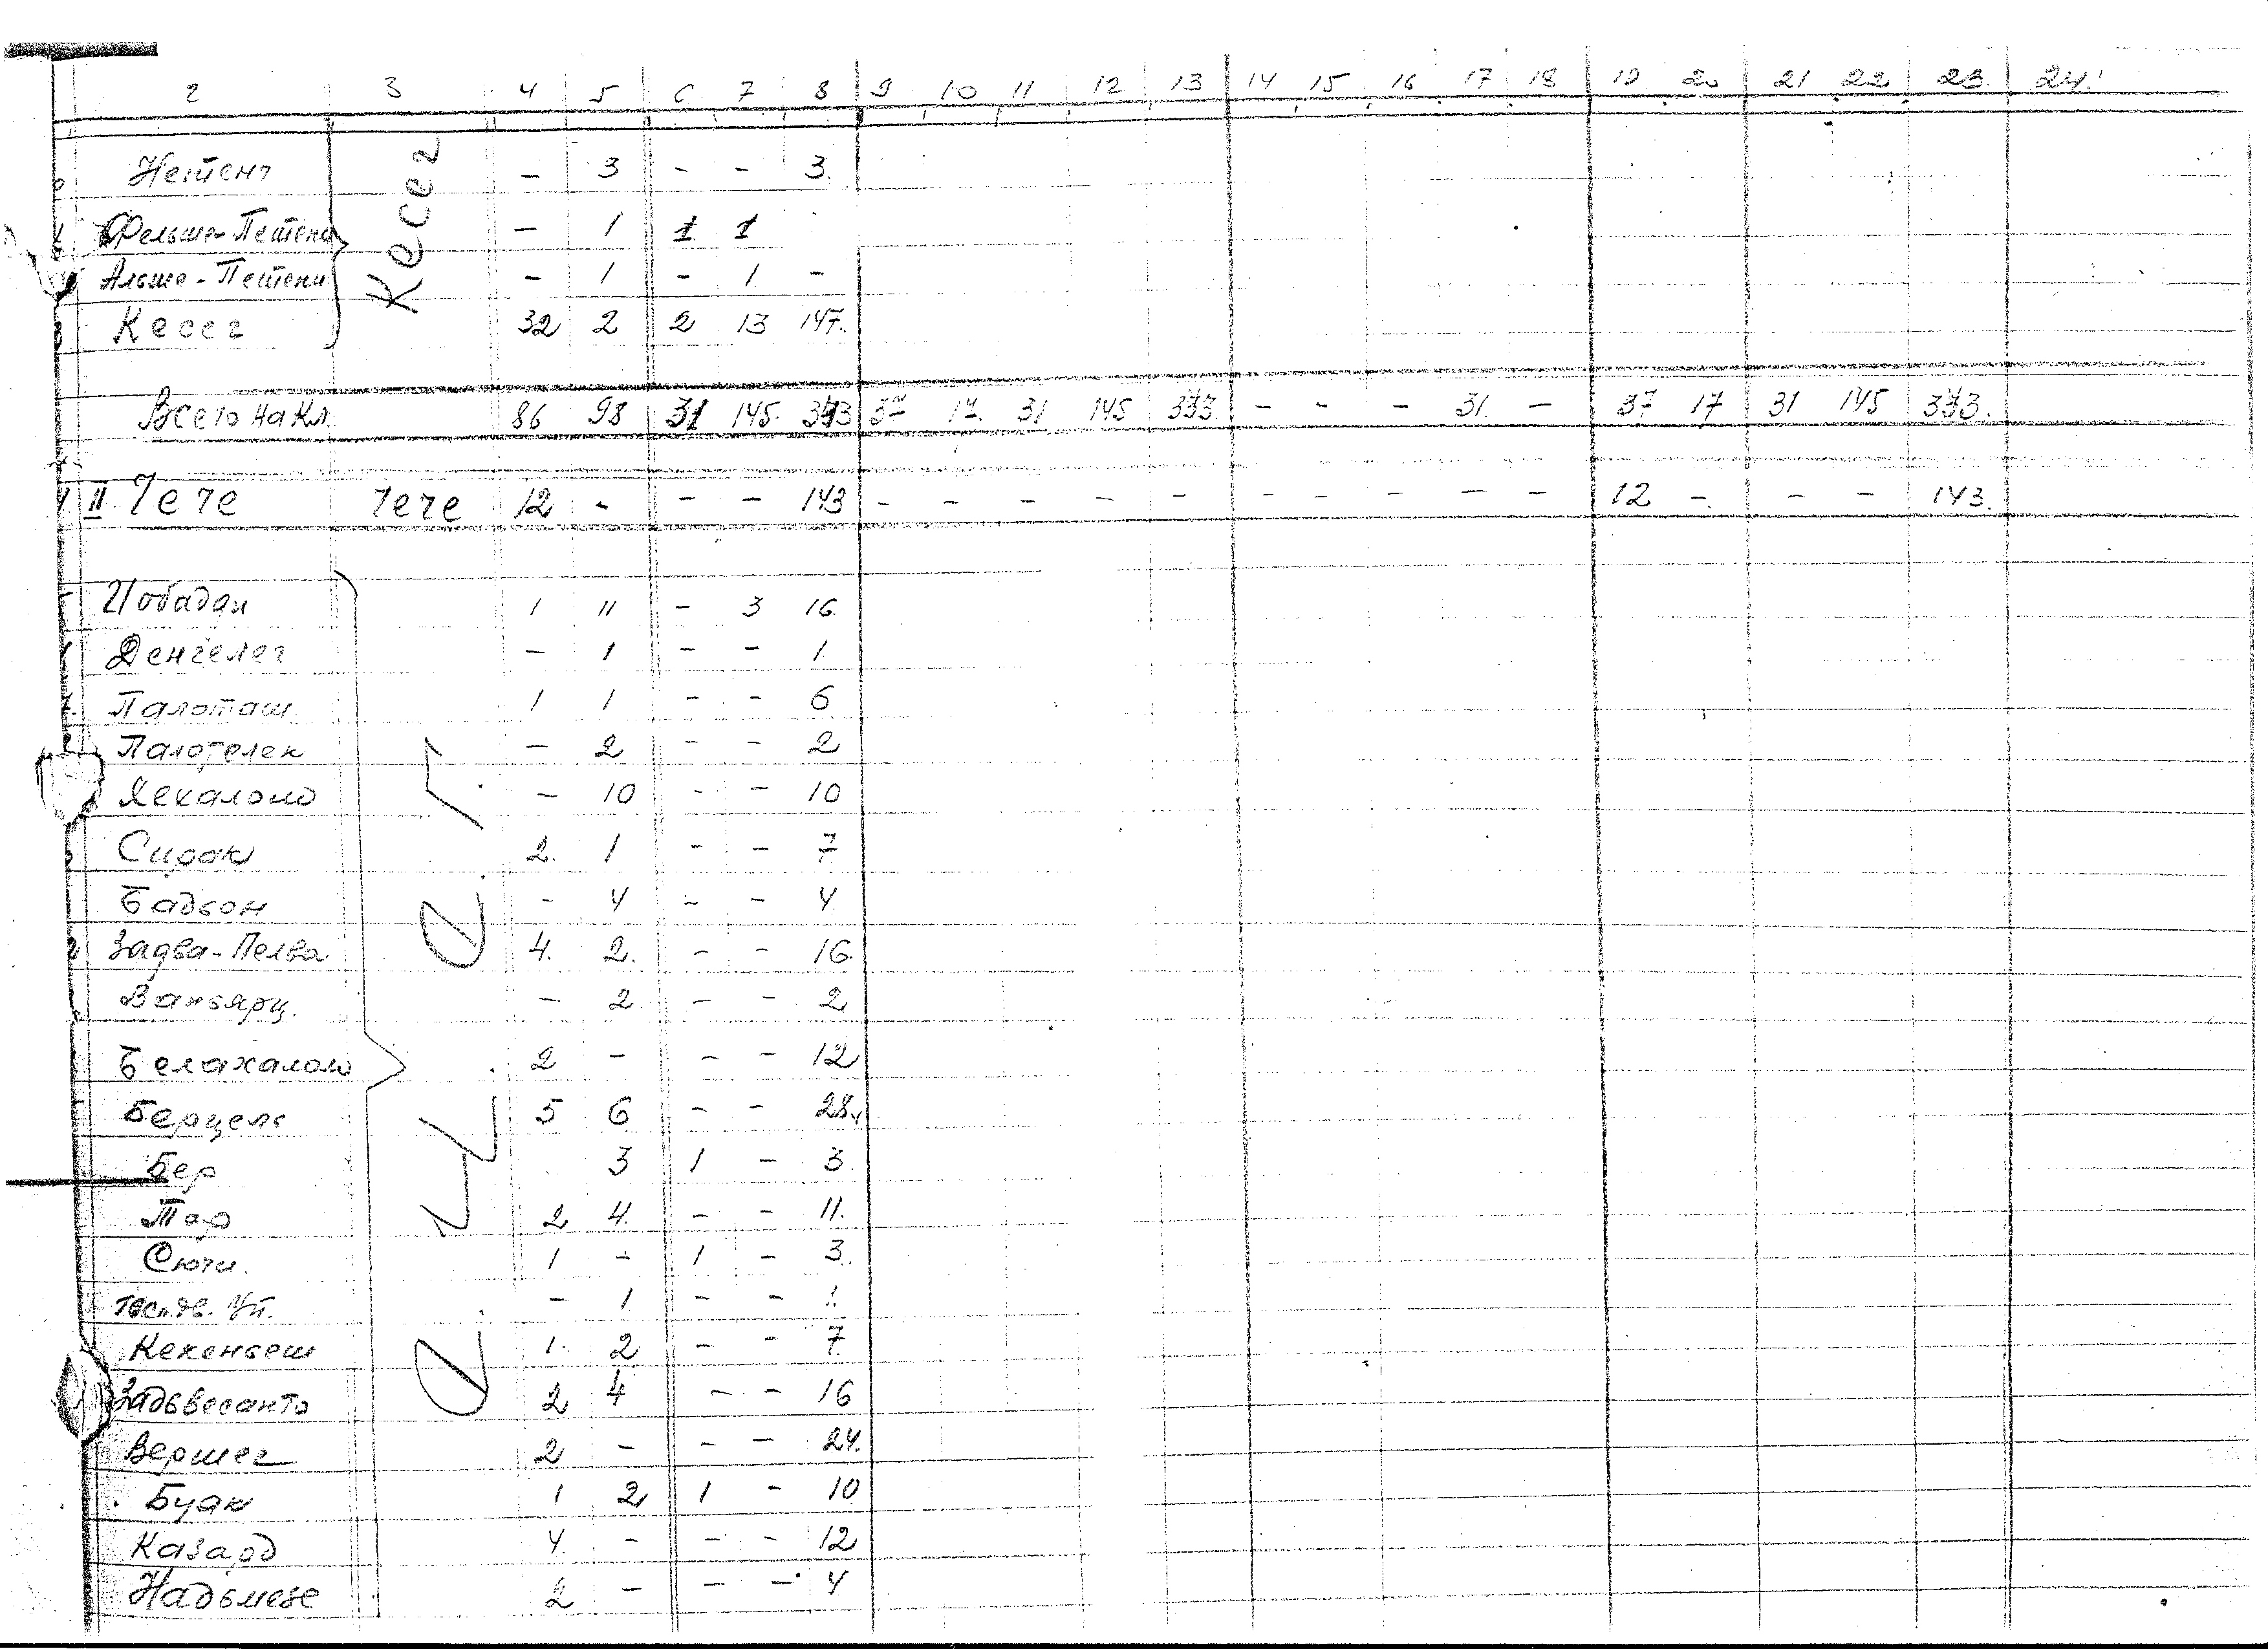 2 3 4 5 6 7 8 9 10 11 12 13 14 15 16 17 18 19 20 21 22 23 24
Нетенг — 3 - - 3.
Кесег
Фельше-Петени — 1 1 1
Альше-Петени — 1 - 1 -
Кесег 32 2 2 13 147.
Всего на Кл. 86 98 31 145. 343 37 17. 31 145 333. - - - 31. - 37 17 31 145 333.
II Чече Чече 12 - - - 143 - - - - - - - - - - 12 - - - 143.
Иобадан 1 11 - 3 16.
Денгелег — 1 - - 1.
Палоташ 1 1 - - 6
Палотелек — 2 - - 2
Яехалоло — 10 - - 10
Сирак 2. 1 - - 7
Бадьон - 4 - - 4
Задва-Пелва 4. 2. - - 16.
Ваньярц. — 2. - - 2
Белахалом 2 - - - 12
Берцель 5 6 - - 28.
Бер 3 1 - 3.
Тар 2 4. - - 11.
Сючи. 1 - 1 - 3.
госп.дв. — 1 - - 1.
Кекеньеш 1. 2 - - 7
Задьвесанто 2 4 - - 16
Вершег 2 - - - 24.
Буак 1 2 1 - 10
Казард 4. - - - 12
Надьмезе 2 - - - 4